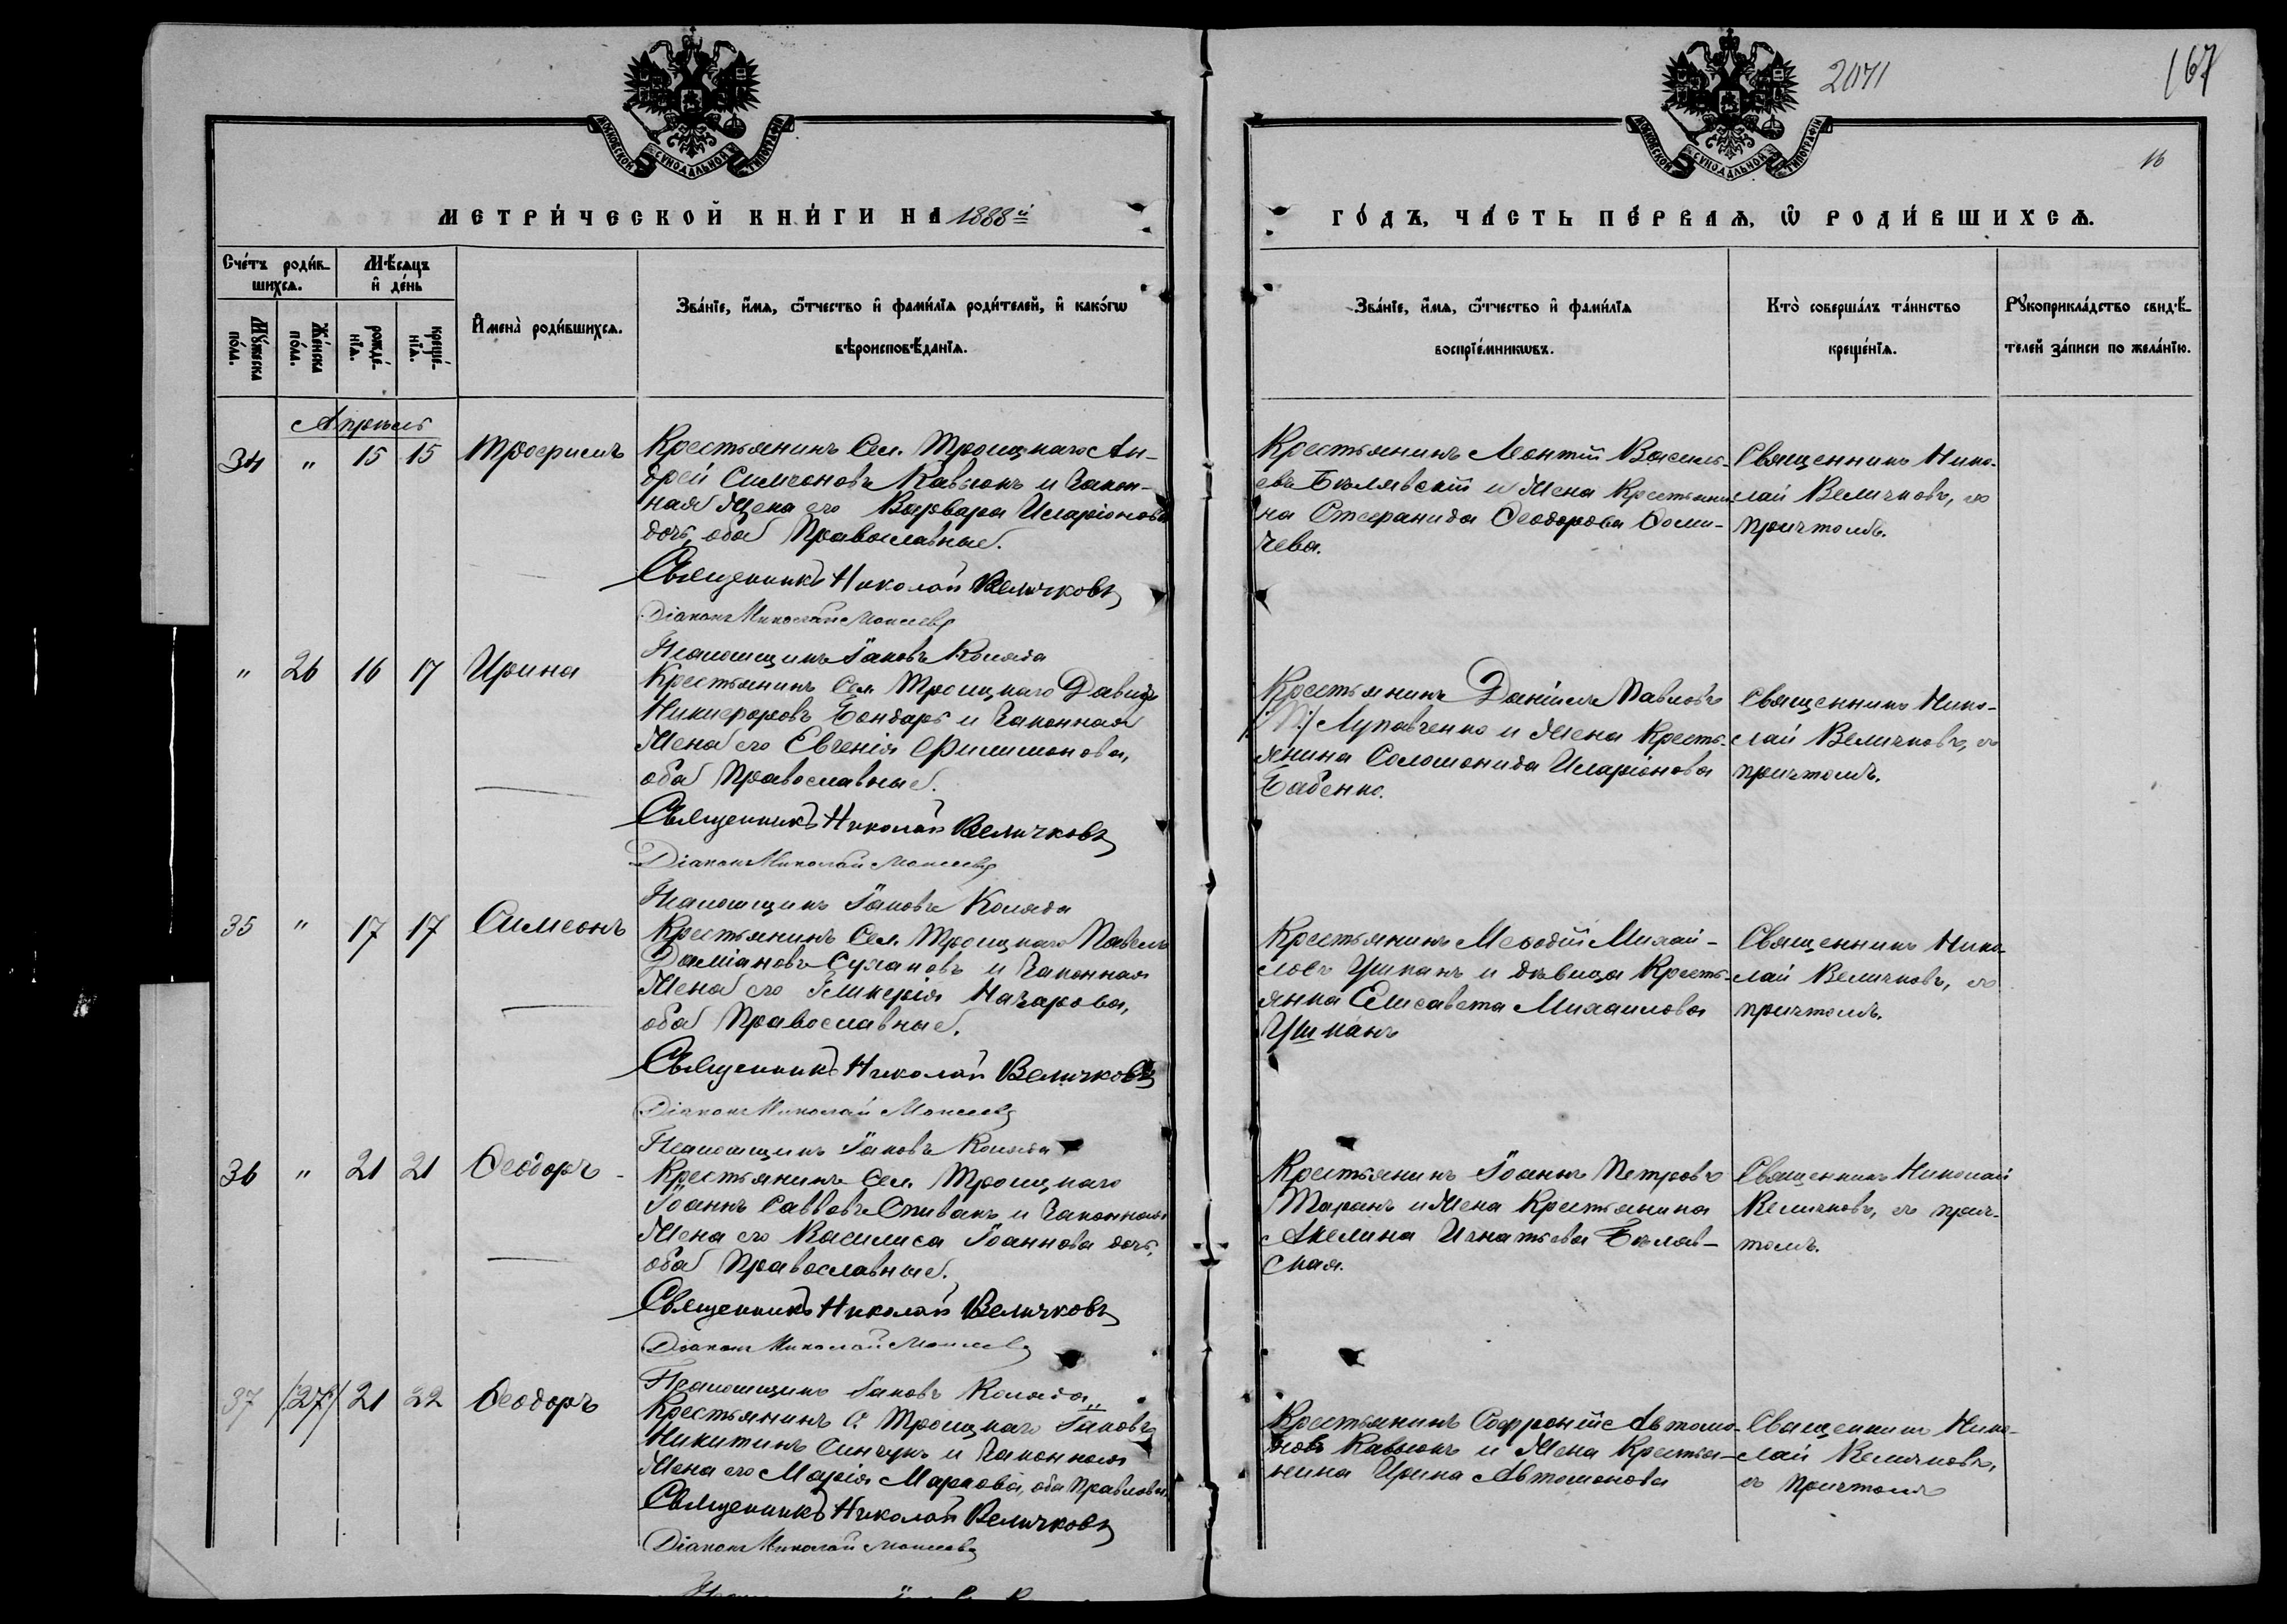 2071
167
16
МОСКОВСКОЙ СУНОДАЛЬНОЙ ТИПОГРАФІИ
МОСКОВСКОЙ СУНОДАЛЬНОЙ ТИПОГРАФІИ
МЕТРИ́ЧЕСКОЙ КНИ́ГИ НА 1888й
ГО́ДЪ, ЧА́СТЬ ПЕ́РВАѦ, Ѿ РОДИ́ВШИХСѦ.
Сче́тъ роди́в-
шихсѧ.
Мѣ́сѧцъ
и҆ де́нь
Мꙋ́жеска по́ла.
Же́нска по́ла.
рожде́-
нїѧ.
креще́-
нїѧ.
И҆мена̀ роди́вшихсѧ.
Зва́нїе, и҆́мѧ, ѻ҆́тчество и҆ фами́лїѧ роди́телей, и҆ како́гѡ
вѣроисповѣ́данїѧ.
Зва́нїе, и҆́мѧ, ѻ҆́тчество и҆ фами́лїѧ
воспрїе́мникѡвъ.
Кто̀ соверша́лъ та́инство
креще́нїѧ.
Рꙋкоприкла́дство свидѣ́-
телей за́писи по жела́нїю.
Апрѣль
34 " 15 15 Трофимъ
Крестьянинъ Сел. Троицкаго Ан-
дрей Симеоновъ Кавюкъ и Закон-
ная Жена его Варвара Иларіонова
дочь, оба Православные.
Священникъ Николай Величковъ
Діаконъ Николай Моисеевъ
Псаломщикъ Іаковъ Коляда
Крестьянинъ Леонтій Василь-
евъ Бѣлявскій и Жена Крестьяни-
на Стефанида Феодорова Фоми-
чева.
Священникъ Нико-
лай Величковъ, съ
причтомъ.
" 26 16 17 Ирина
Крестьянинъ Сел. Троицкаго Давидъ
Никифоровъ Бондарь и Законная
Жена его Евгенія Филимонова,
оба Православные.
Священникъ Николай Величковъ
Діаконъ Николай Моисеевъ
Псаломщикъ Іаковъ Коляда
Крестьянинъ Даніилъ Павловъ
Лупавченко и Жена Кресть-
янина Соломонида Иларіонова
Бабенко.
Священникъ Нико-
лай Величковъ, съ
причтомъ.
35 " 17 17 Симеонъ
Крестьянинъ Сел. Троицкаго Павелъ
Даміановъ Сухановъ и Законная
Жена его Гликерія Назарова,
оба Православные.
Священникъ Николай Величковъ
Діаконъ Николай Моисеевъ
Псаломщикъ Іаковъ Коляда
Крестьянинъ Меѳодій Михай-
ловъ Ушканъ и дѣвица Кресть-
янка Елисавета Михаилова
Ушканъ
Священникъ Нико-
лай Величковъ, съ
причтомъ.
36 " 21 21 Феодоръ
Крестьянинъ Сел. Троицкаго
Іоаннъ Саввовъ Спивакъ и Законная
Жена его Василиса Іоаннова дочь,
оба Православные.
Священникъ Николай Величковъ
Діаконъ Николай Моисеевъ
Псаломщикъ Іаковъ Коляда
Крестьянинъ Іоаннъ Петровъ
Таранъ и Жена Крестьянина
Акелина Игнатьева Бѣляв-
ская.
Священникъ Николай
Величковъ, съ прич-
томъ.
37 /27/ 21 22 Феодоръ
Крестьянинъ С. Троицкаго Іаковъ
Никитинъ Синчукъ и Законная
Жена его Марія Маркова, оба Правосла.
Священникъ Николай Величковъ
Діаконъ Николай Моисеевъ
Крестьянинъ Софроній Автомо-
новъ Кавюкъ и Жена Крестья-
нина Ирина Автомонова
Священникъ Нико-
лай Величковъ,
съ причтомъ